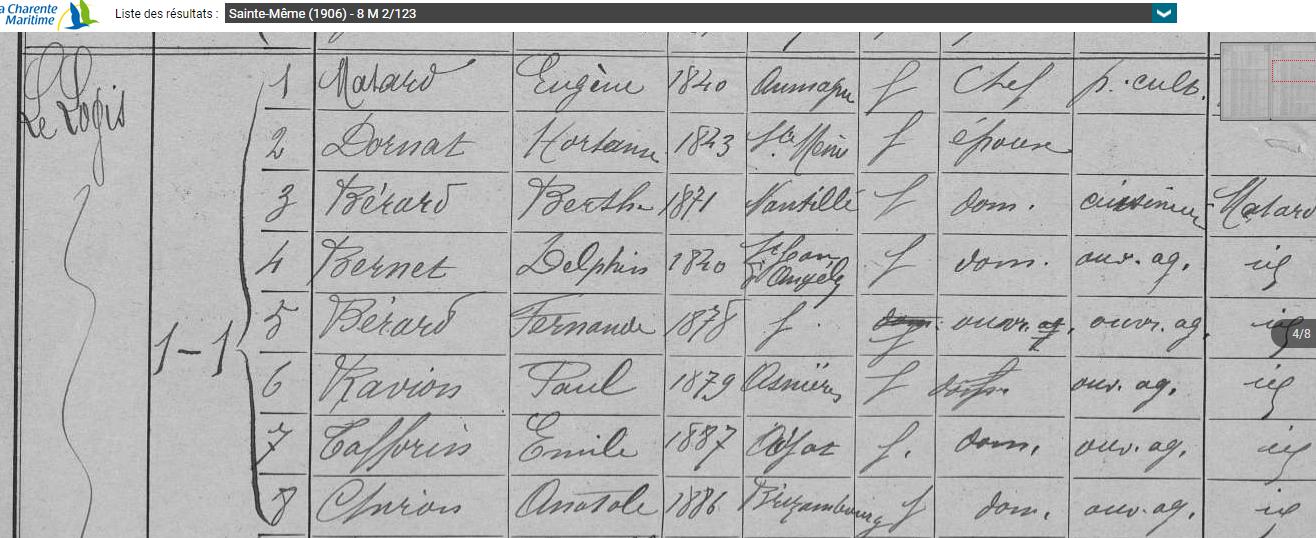 la Charente
Maritime
Liste des résultats : Sainte-Même (1906) - 8 M 2/123
Le Logis
1 Matard Eugène 1840 Aumagne f Chef p. cult.
2 Dornat Hortense 1843 Ste Même f épouse
3 Bérard Berthe 1871 Nantillé f dom. cuisinière Matard
4 Bernet Delphin 1840 St Jean d'Angély f dom. ouv. ag. id
5 Bérard Fernande 1878 f. f ouvr. ag. ouvr. ag. id
4/8
1-1
6 Ravion Paul 1879 Asnières f dom. ouv. ag. id
7 Tafforin Emile 1887 f. dom. ouv. ag. id
8 Churon Anatole 1886 Brizambourg f dom. ouv. ag. id